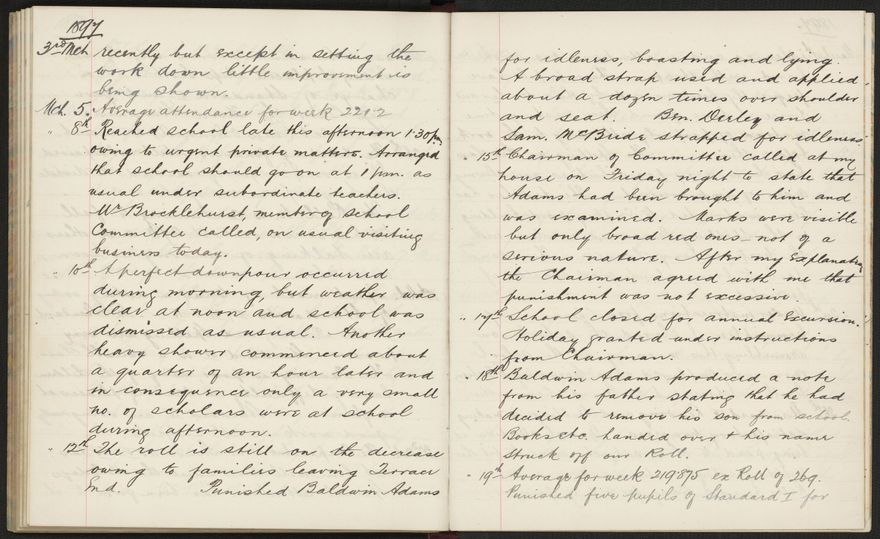 1897
3rd Mch. recently but except in setting the
work down little improvement is
being shown.
Mch. 5. Average attendance for week 221.2
" 8th Reached school late this afternoon 1.30 p.m.
owing to urgent private matters. Arranged
that school should go on at 1 p.m. as
usual under subordinate teachers.
Mr Brocklehurst, member of School
Committee called, on usual visiting
business today.
" 10th A perfect downpour occurred
during morning, but weather was
clear at noon and school was
dismissed as usual. Another
heavy shower commenced about
a quarter of an hour later and
in consequence only a very small
no. of scholars were at school
during afternoon.
" 12th The roll is still on the decrease
owing to families leaving Terrace
End. Punished Baldwin Adams
for idleness, boasting and lying.
A broad strap used and applied
about a dozen times over shoulder
and seat. Ben. Oxley and
Sam. McBride strapped for idleness.
" 15th Chairman of Committee called at my
house on Friday night to state that
Adams had been brought to him and
was examined. Marks were visible
but only broad red ones - not of a
serious nature. After my explanation
the Chairman agreed with me that
punishment was not excessive.
" 17th School closed for annual Excursion.
Holiday granted under instructions
from Chairman.
" 18th Baldwin Adams produced a note
from his father stating that he had
decided to remove his son from school.
Books etc. handed over & his name
struck off our Roll.
" 19th Average for week 219.875 ex Roll of 269.
Punished five pupils of Standard I for